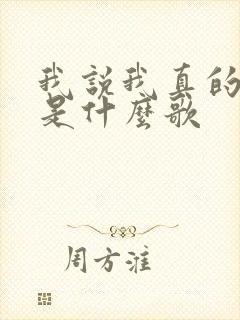 我説我真的
是什麼歌
周方淮